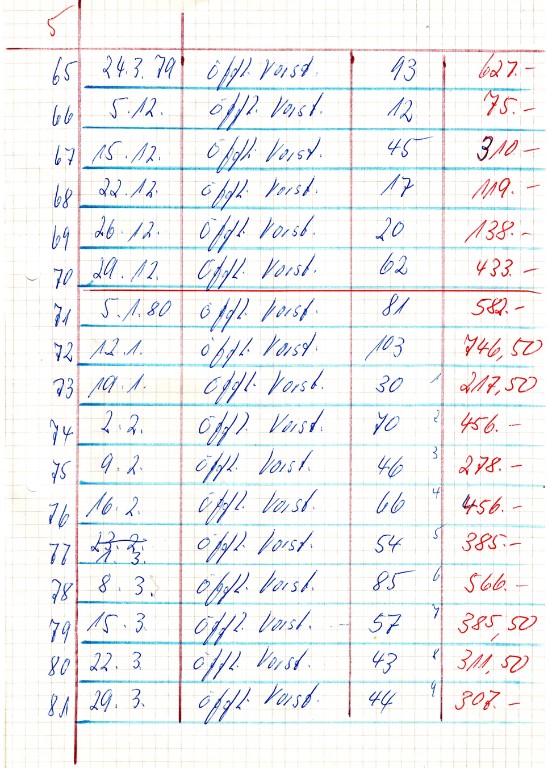 5
65 24.3.79 Öffl. Vorst. 93 627.-
66 5.12. Öffl. Vorst. 12 75.-
67 15.12. Öffl. Vorst. 45 310.-
68 22.12. Öffl. Vorst. 17 119.-
69 26.12. Öffl. Vorst. 20 138.-
70 29.12. Öffl. Vorst. 62 433.-
71 5.1.80 Öffl. Vorst. 81 582.-
72 12.1. Öffl. Vorst. 103 746,50
73 19.1. Öffl. Vorst. 30 1 217,50
74 2.2. Öffl. Vorst. 70 2 456.-
75 9.2. Öffl. Vorst. 46 3 278.-
76 16.2. Öffl. Vorst. 66 4 456.-
77 1.3. Öffl. Vorst. 54 5 385.-
78 8.3. Öffl. Vorst. 85 6 566.-
79 15.3. Öffl. Vorst. 57 7 385,50
80 22.3. Öffl. Vorst. 43 8 311,50
81 29.3. Öffl. Vorst. 44 9 307.-